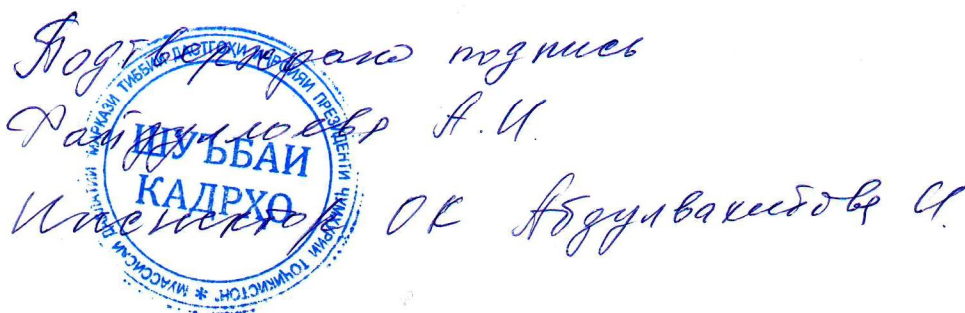 Подтверждаю подпись
Файзуллоева А.И.
Инспектор ОК Абдулвахитова И.
ШУЪБАИ
КАДРҲО
МУАССИСАИ ДАВЛАТИИ МАРКАЗИ ТИББИИ ДАСТГОҲИ ИҶРОИЯИ ПРЕЗИДЕНТИ ҶУМҲУРИИ ТОҶИКИСТОН